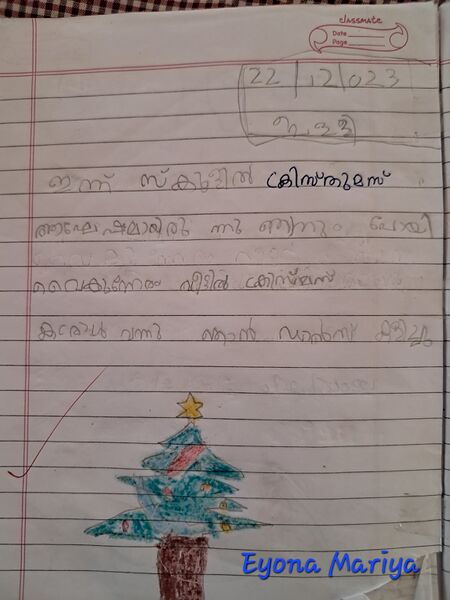 classmate
Date
Page
22/12/2023
ഇന്ന് സ്കൂളിൽ ക്രിസ്തുമസ്
ആഘോഷമായിരു ന്നു ഞാനും പോയി
വൈകുന്നേരം വീട്ടിൽ ക്രിസ്മസ്
കരോൾ വന്നു ഞാൻ ഡാൻസ് കളിച്ചു
Eyona Mariya